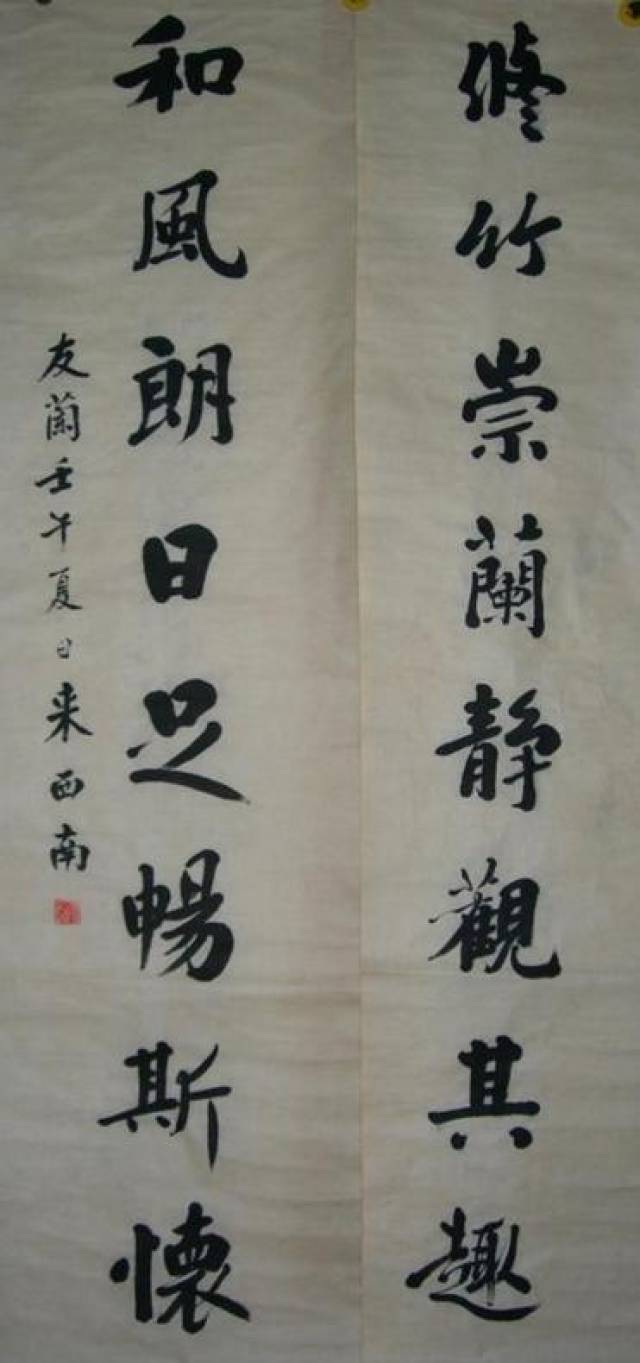 修竹崇蘭靜觀其趣
和風朗日足暢斯懷
友蘭壬午夏日来西南